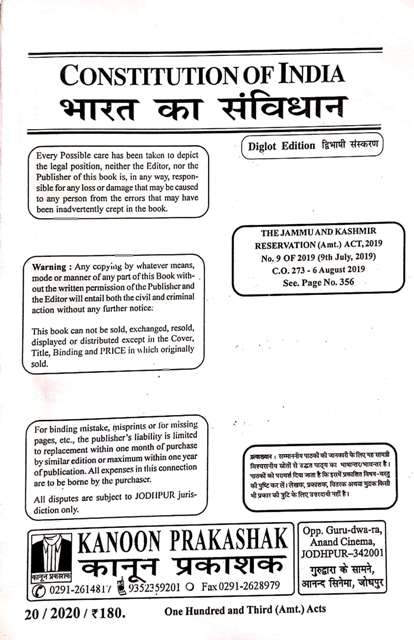 CONSTITUTION OF INDIA
भारत का संविधान
Diglot Edition द्विभाषी संस्करण
Every Possible care has been taken to depict
the legal position, neither the Editor, nor the
Publisher of this book is, in any way, respon-
sible for any loss or damage that may be caused
to any person from the errors that may have
been inadvertently crept in the book.
THE JAMMU AND KASHMIR
RESERVATION (Amt.) ACT, 2019
No. 9 OF 2019 (9th July, 2019)
C.O. 273 - 6 August 2019
See. Page No. 356
Warning : Any copying by whatever means,
mode or manner of any part of this Book with-
out the written permission of the Publisher and
the Editor will entail both the civil and criminal
action without any further notice.
This book can not be sold, exchanged, resold,
displayed or distributed except in the Cover,
Title, Binding and PRICE in which originally
sold.
For binding mistake, misprints or for missing
pages, etc., the publisher's liability is limited
to replacement within one month of purchase
by similar edition or maximum within one year
of publication. All expenses in this connection
are to be borne by the purchaser.
All disputes are subject to JODHPUR juris-
diction only.
प्रत्याख्यान : सम्माननीय पाठकों की जानकारी के लिए यह सामग्री
विश्वसनीय स्रोतों से उद्धृत पाठ्य का भाषान्तर/भावान्तर है।
पाठकों को परामर्श दिया जाता है कि इसमें प्रकाशित विषय-वस्तु
की पुष्टि कर लें। लेखक, प्रकाशक, वितरक अथवा मुद्रक किसी
भी प्रकार की त्रुटि के लिए उत्तरदायी नहीं है।
KANOON PRAKASHAK
कानून प्रकाशक
कानून प्रकाशक
0291-2614817 9352359201 Fax 0291-2628979
Opp. Guru-dwa-ra,
Anand Cinema,
JODHPUR-342001
गुरुद्वारा के सामने,
आनन्द सिनेमा, जोधपुर
20 / 2020 / ₹180.
One Hundred and Third (Amt.) Acts